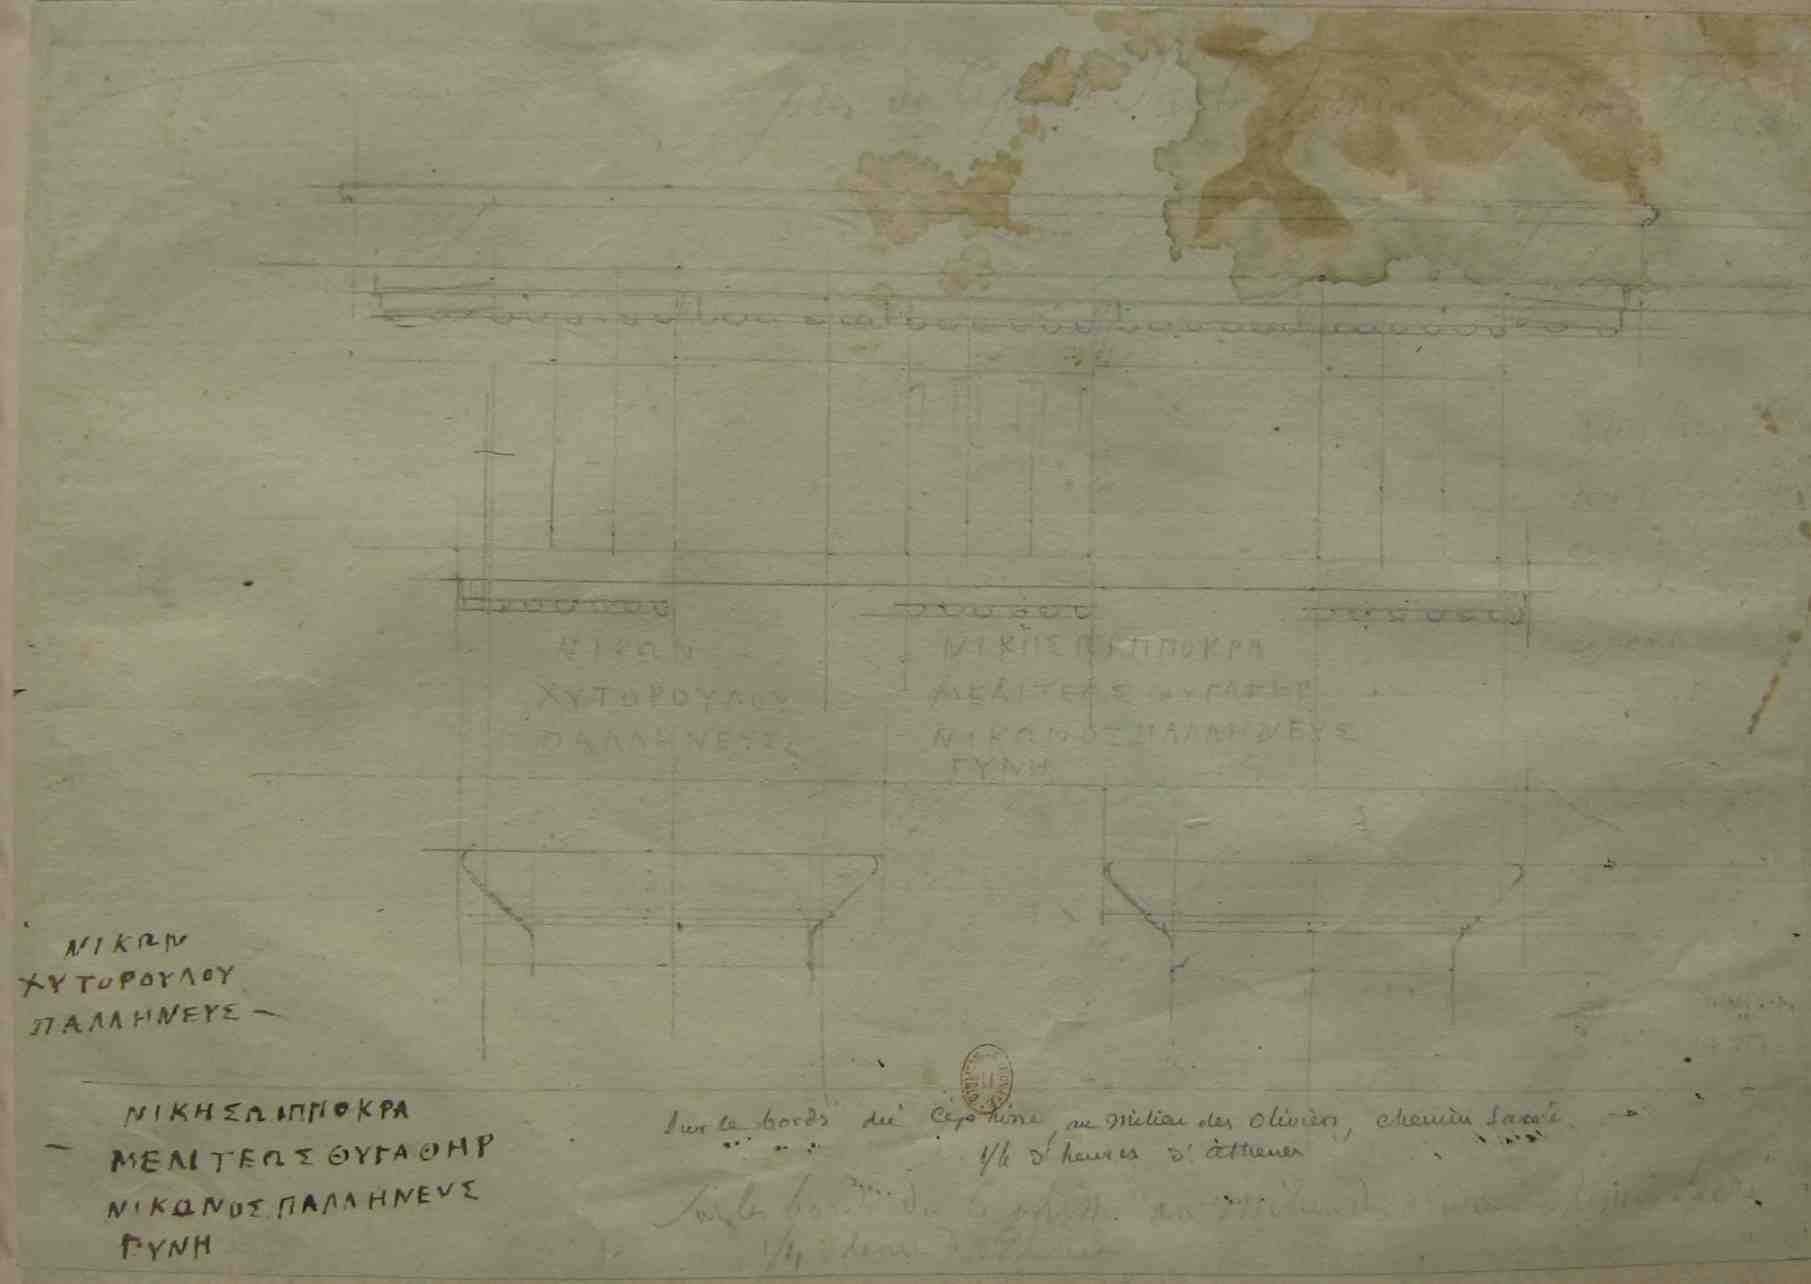 ΝΙΚΩΝ
ΧΥΤΟΡΟΥΛΟΥ
ΠΑΛΛΗΝΕΥΣ
ΝΙΚΗΣ ΙΠΠΟΚΡΑ
ΜΕΛΙΤΕΩΣ ΘΥΓΑΘΗΡ
ΝΙΚΩΝΟΣ ΠΑΛΛΗΝΕΥΣ
ΓΥΝΗ
ΝΙΚΩΝ
ΧΥΤΟΡΟΥΛΟΥ
ΠΑΛΛΗΝΕΥΣ
ΝΙΚΗΣΩ ΙΠΠΟΚΡΑ
ΜΕΛΙΤΕΩΣ ΘΥΓΑΘΗΡ
ΝΙΚΩΝΟΣ ΠΑΛΛΗΝΕΥΣ
ΓΥΝΗ
Sur le bords du Céphisse, au milieu des oliviers, chemin Sacré
1/4 d'heures d'athenes
Sur les bords du au milieu
1/4